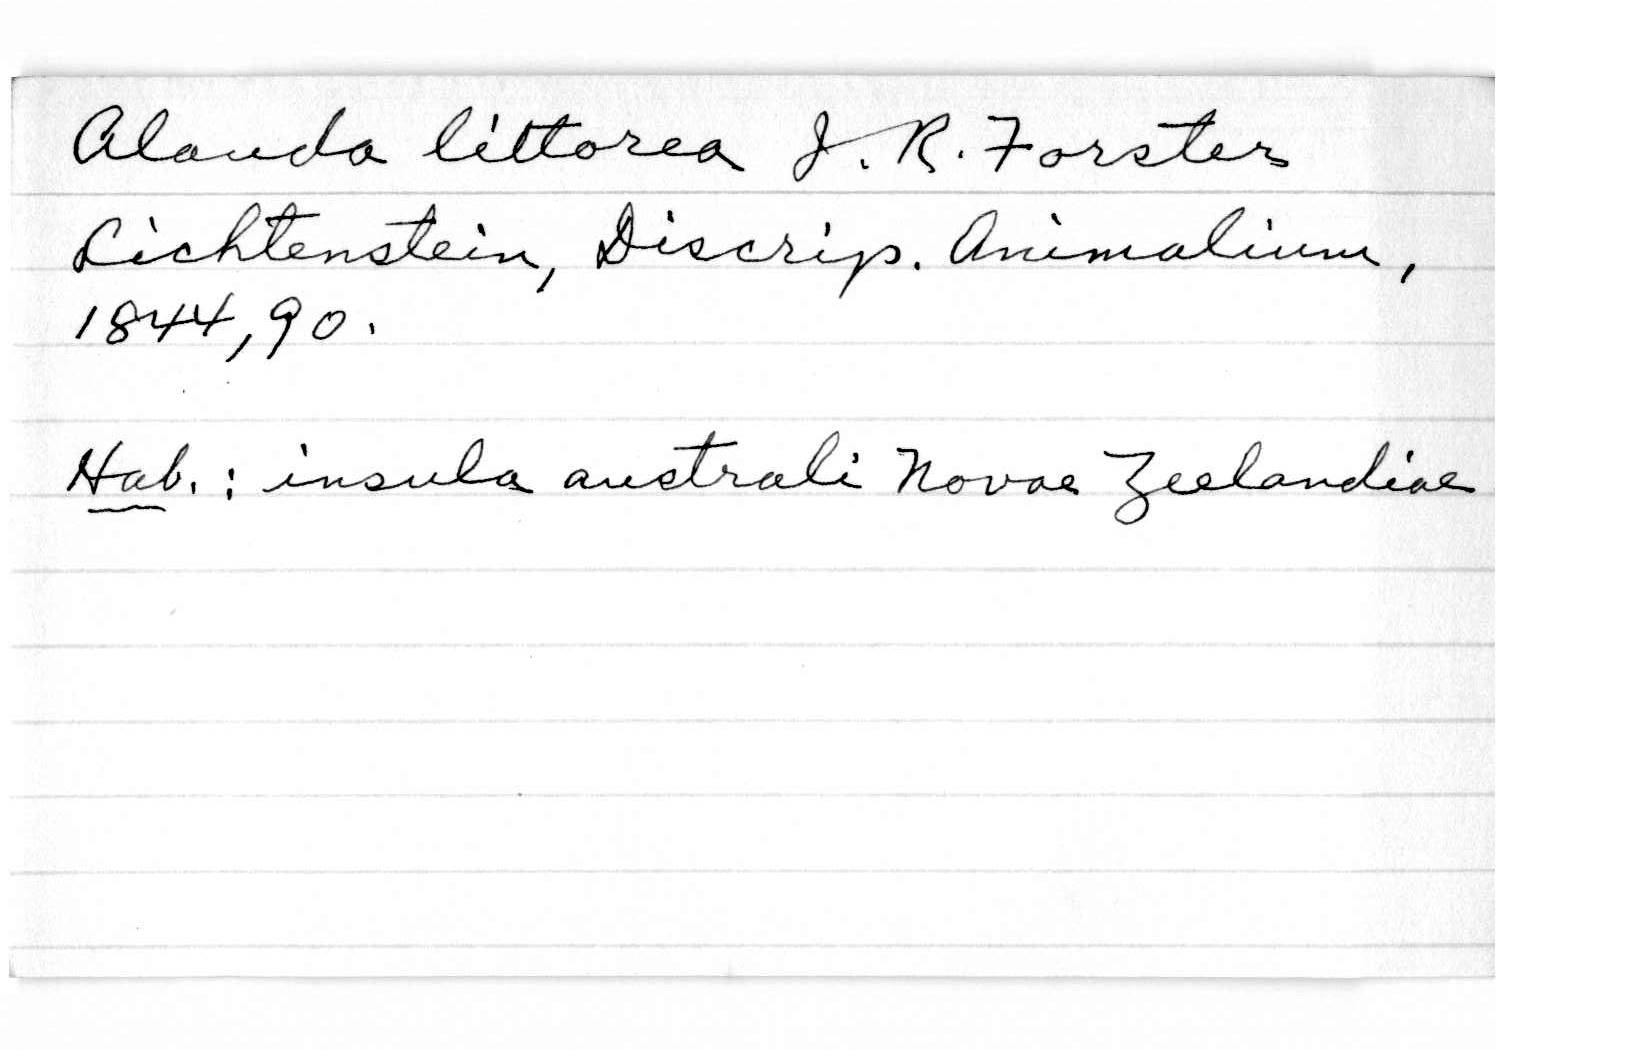 Alauda littorea J. R. Forster
Lichtenstein, Discrip. Animalium,
1844, 90.
Hab. : insula australi Novae Zeelandiae